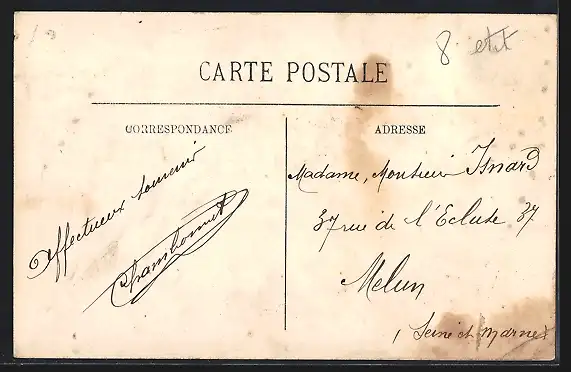 8 etit
CARTE POSTALE
CORRESPONDANCE
Affectueux souvenir
Chambonnet
ADRESSE
Madame, Monsieur Isnard
37 rue de l'Ecluse 37
Melun
(Seine et Marne)